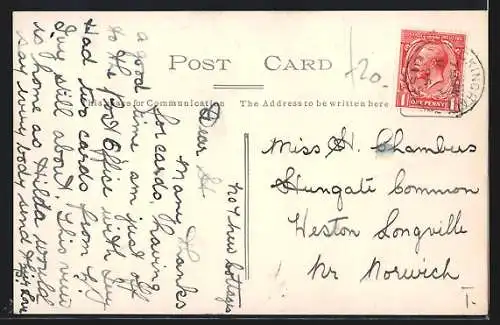 POST CARD
This space for Communication
The Address to be written here
£20.
ONE PENNY
No 7 New Cottages
Dear H.
Many thanks
for cards, having
a good time, am just off
to the Post Office with Ivy
Had two cards from G.J
Ivy still about. This view
is home as Hilda would
say every body send their love
Miss H. Chambers
Hungate Common
Weston Longville
Nr Norwich
T.